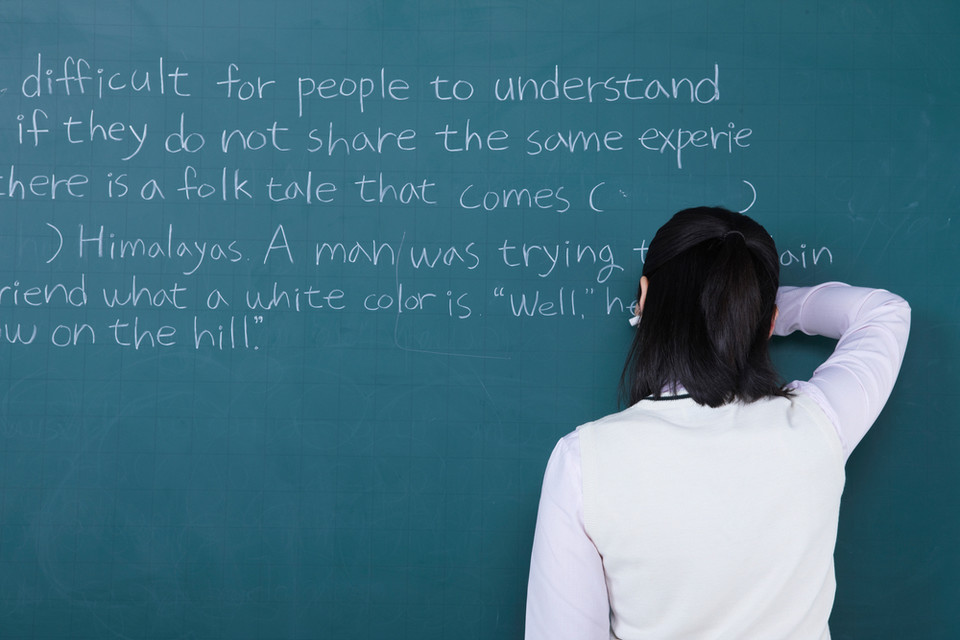 difficult for people to understand
if they do not share the same experie
there is a folk tale that comes (          )
) Himalayas. A man was trying t    ain
riend what a white color is. "Well," he
ow on the hill."